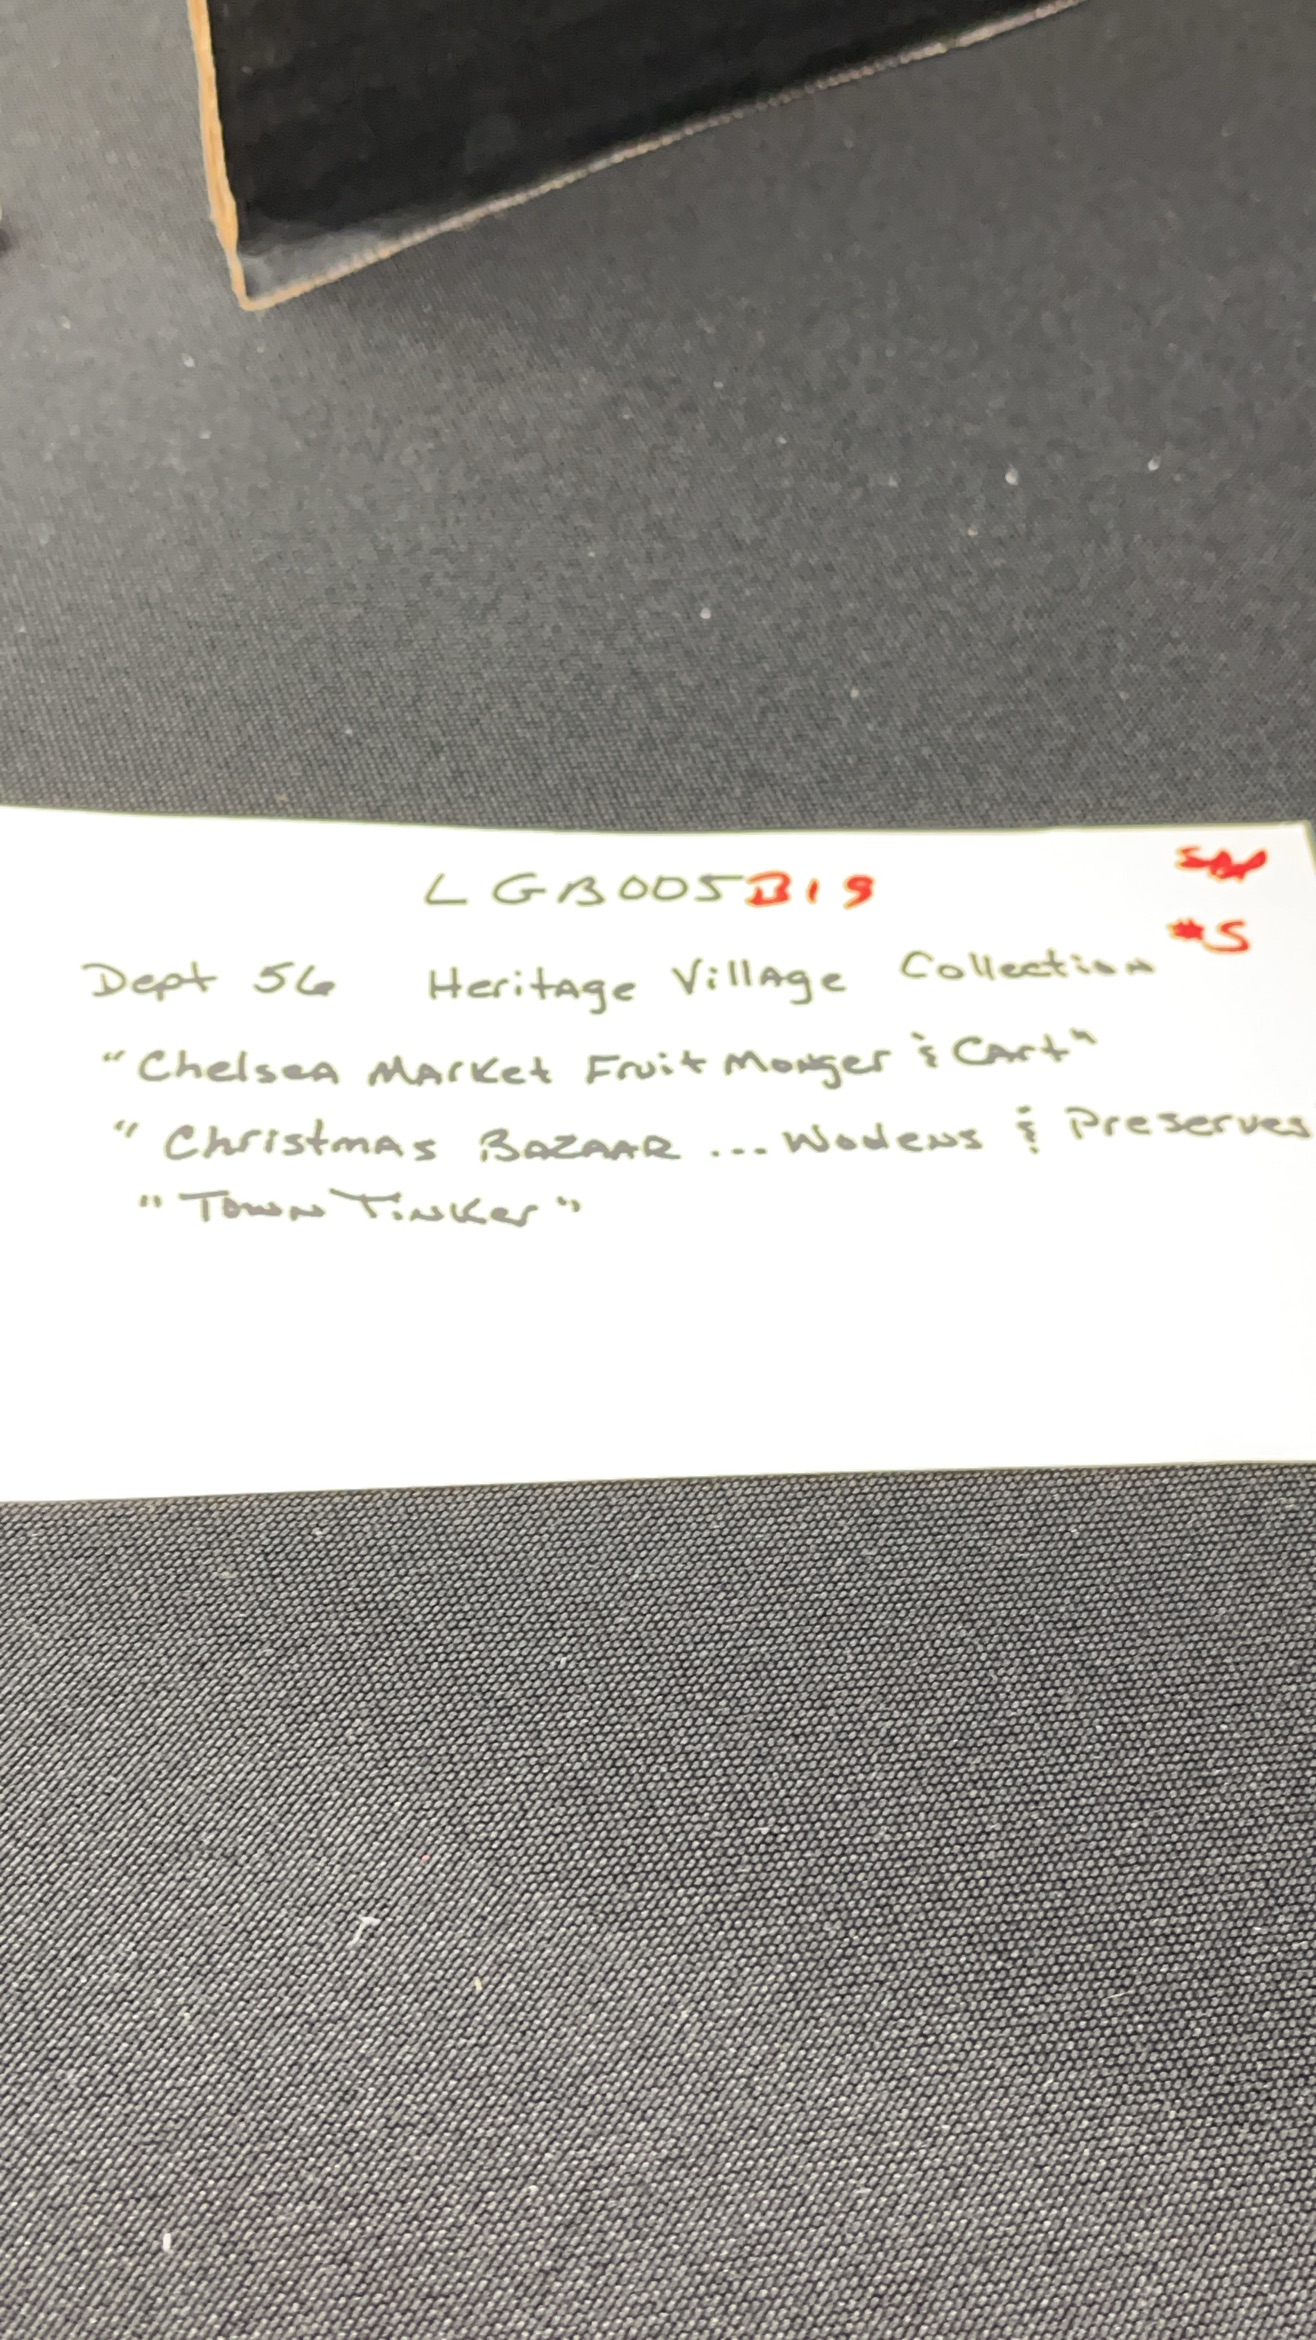 LGB005B19
#5
Dept 56 Heritage Village Collection
"Chelsea Market Fruit Monger & Cart"
"Christmas BAZAAR ... Wodens & Preserves
"Town Tinker"